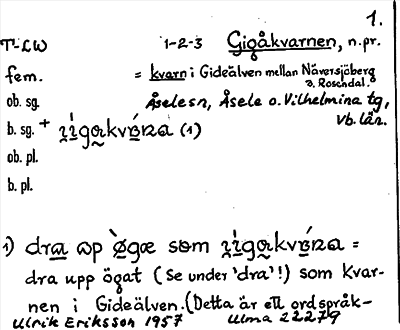 1.
T-LW 1-2-3 Gigåkvarnen, n.pr.
fem. = kvarn i Gideälven mellan Näversjöberg
o. Rosendal.
ob. sg. Åselesn, Åsele o. Vilhelmina tg,
Vb. län.
b. sg. + (1)
ob. pl.
b. pl.
1) dra som =
dra upp ögat (se under 'dra'!) som kvar-
nen i Gideälven. (Detta är ett ordspråk-
Ulrik Eriksson 1957 Ulma 22279